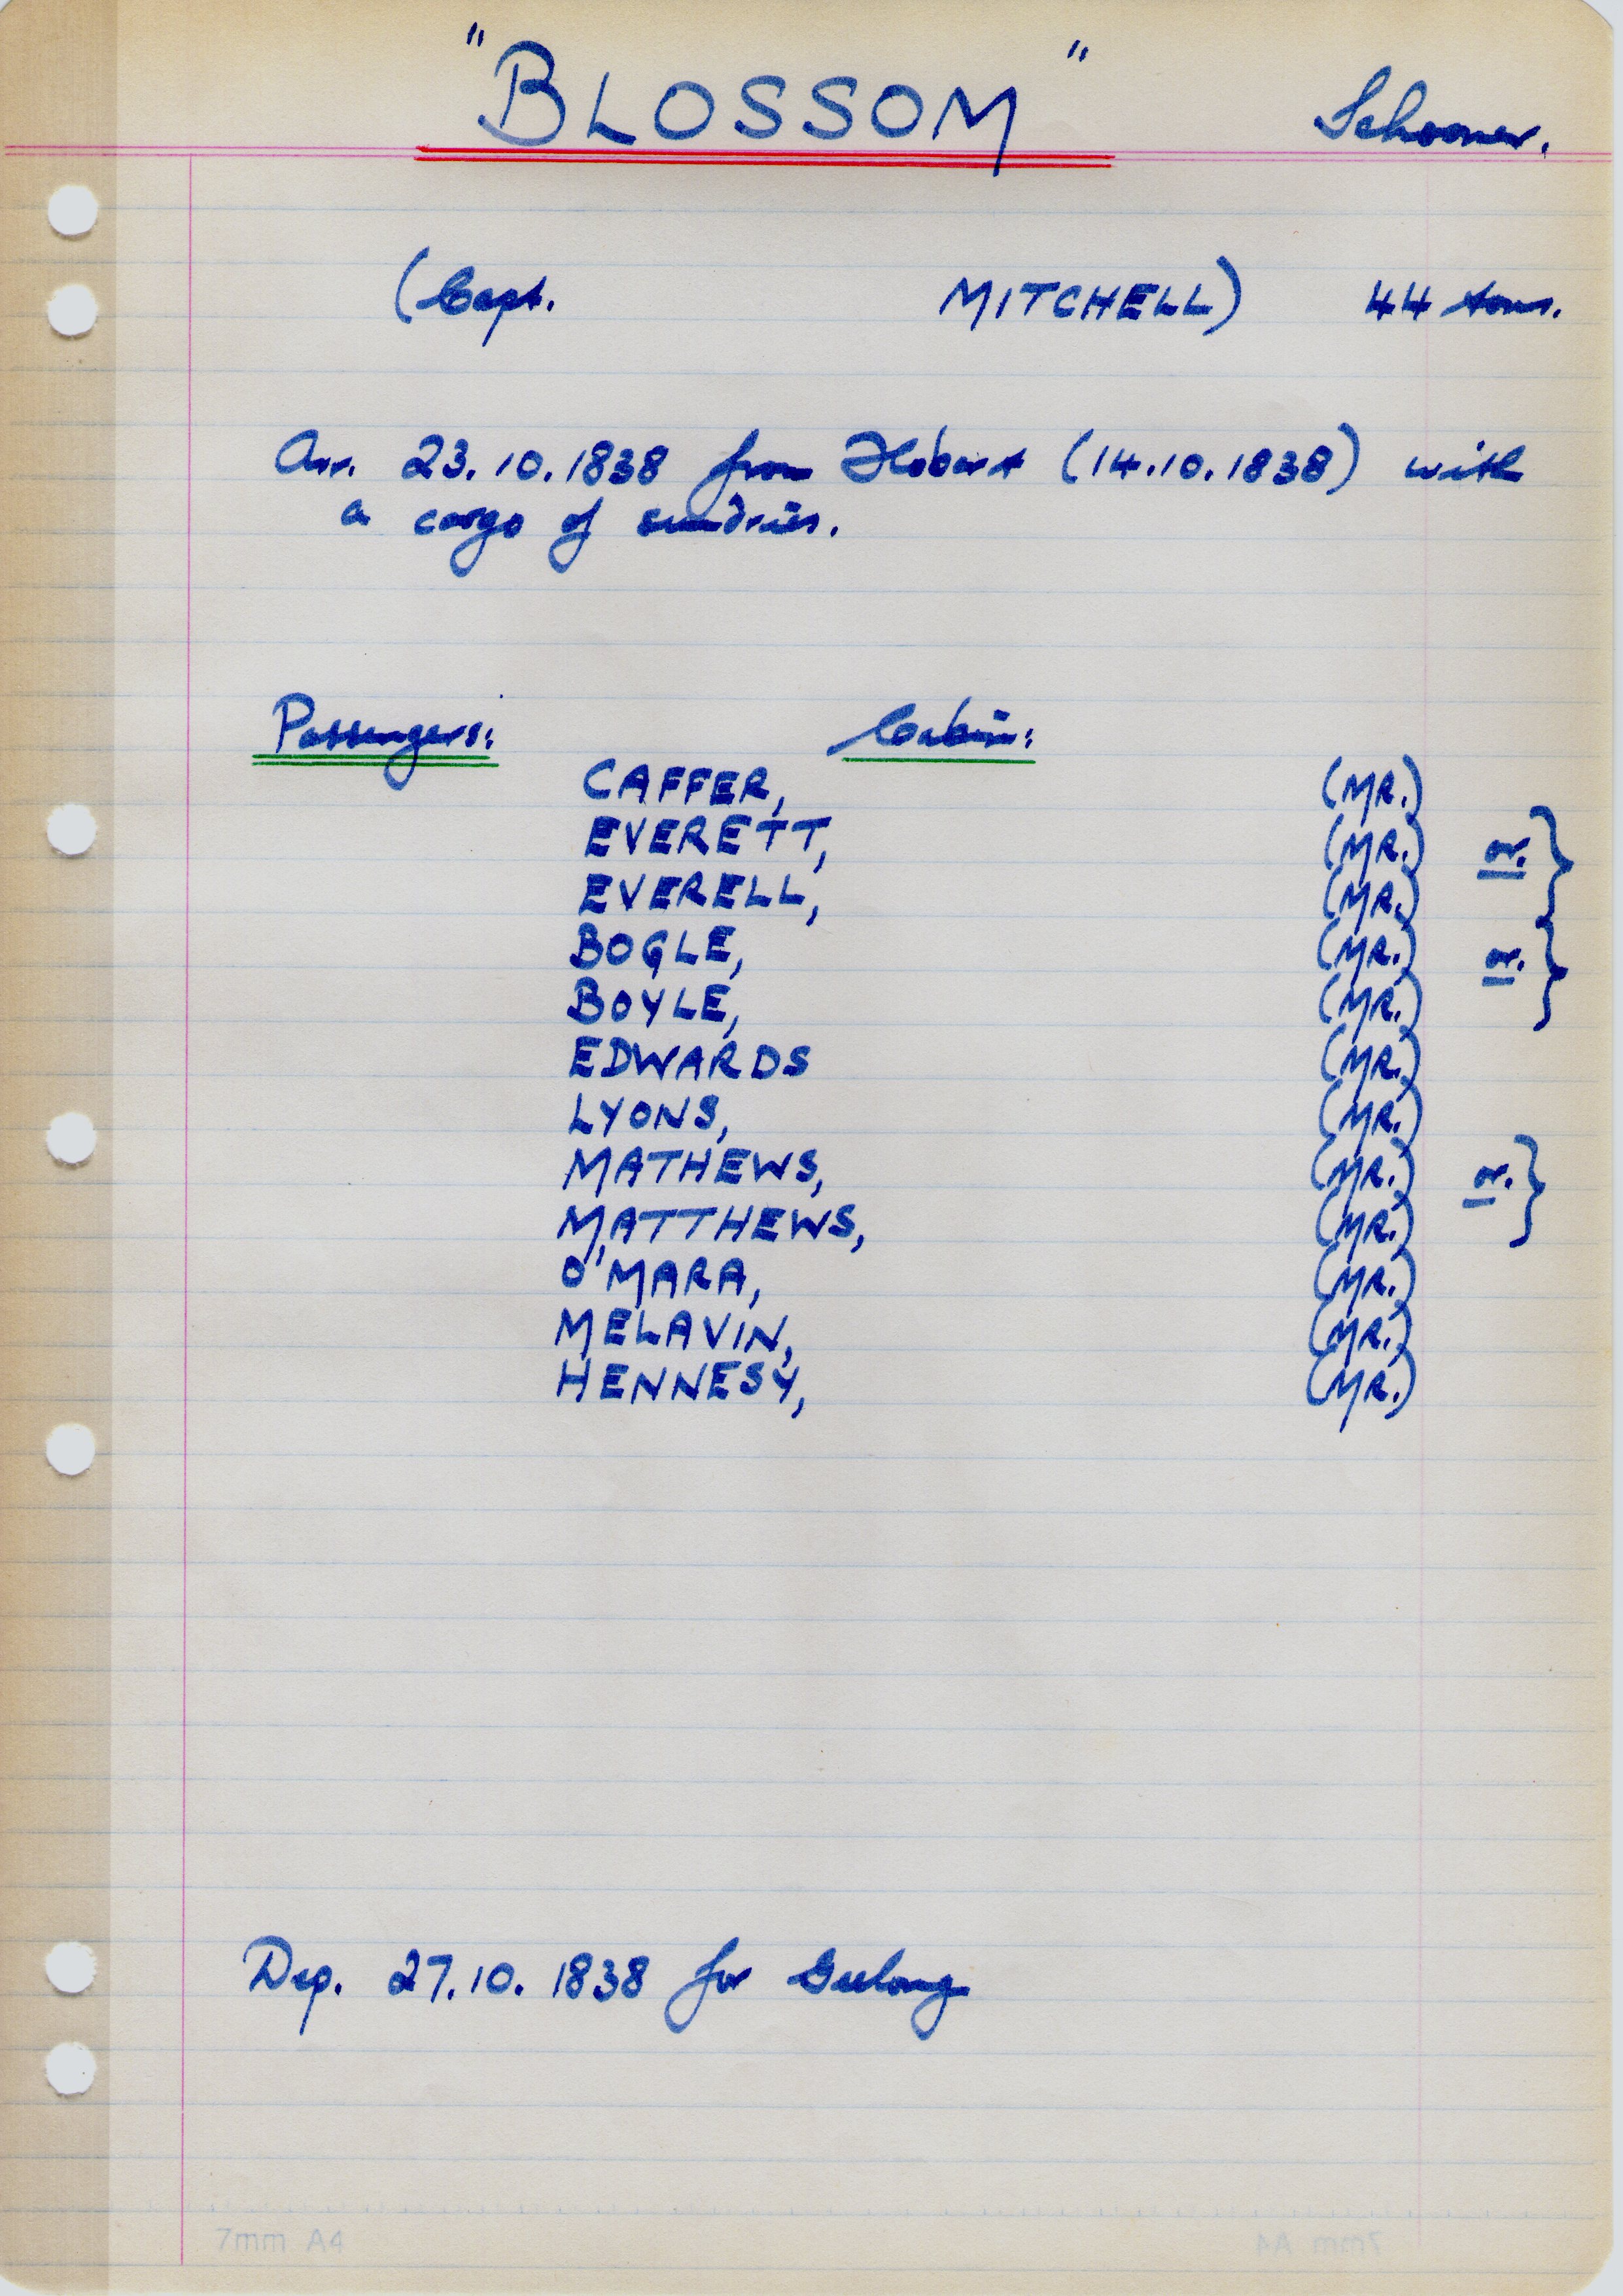 "BLOSSOM" Schooner.
(Capt. MITCHELL) 44 tons.
Arr. 23.10.1838 from Hobart (14.10.1838) with
a cargo of sundries.
Passengers: Cabin:
CAFFER, (MR.)
EVERETT, (MR.) or. }
EVERELL, (MR.)
BOGLE, (MR.) or. }
BOYLE, (MR.)
EDWARDS (MR.)
LYONS, (MR.)
MATHEWS, (MR.) or. }
MATTHEWS, (MR.)
O'MARA, (MR.)
MELAVIN, (MR.)
HENNESY, (MR.)
Dep. 27.10.1838 for Geelong
7mm A4 7mm A4